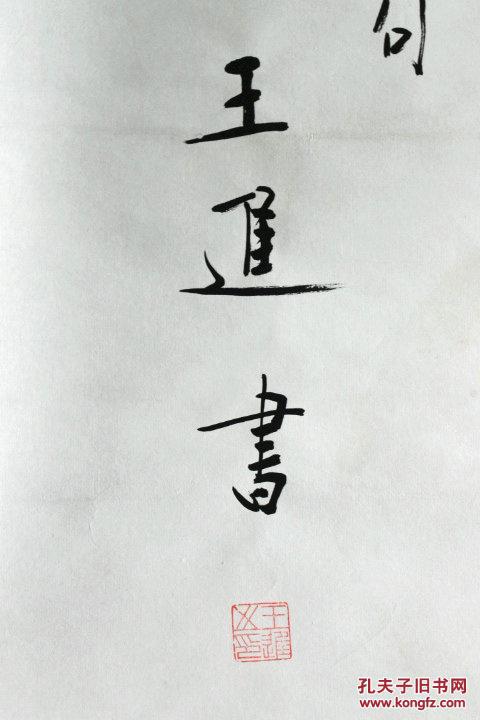 句
王進書
王進之印
孔夫子旧书网
www.kongfz.com